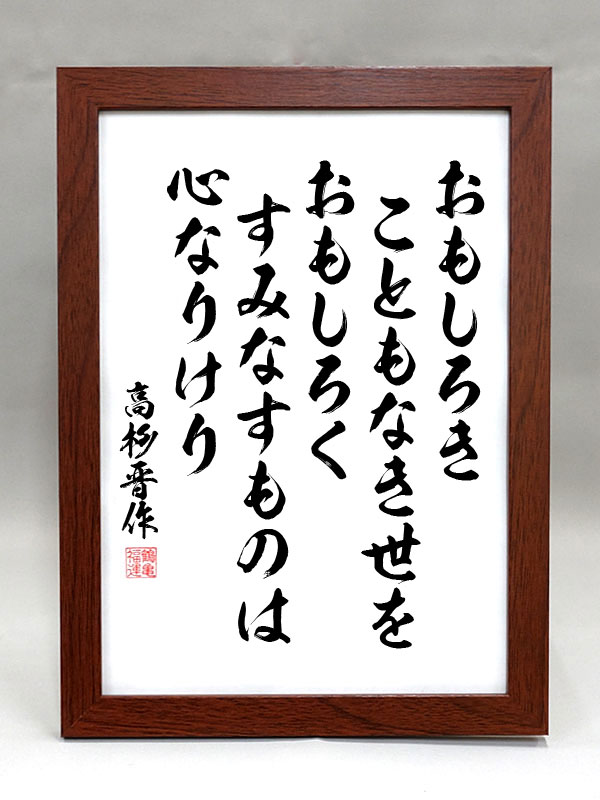 おもしろき
こともなき世を
おもしろく
すみなすものは
心なりけり
高杉晋作
鶴亀
福運